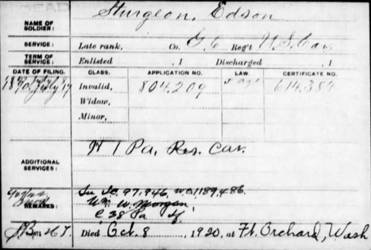 NAME OF SOLDIER: Sturgeon, Edson
SERVICE: Late rank, Co. G, 6 Reg't U.S. Cav.
TERM OF SERVICE: Enlisted , 1 Discharged , 1
DATE OF FILING. CLASS. APPLICATION NO. LAW. CERTIFICATE NO.
1890 July 17 Invalid, 804,209 614,384
Widow,
Minor,
ADDITIONAL SERVICES: H 1 Pa, Res. Cav.
REMARKS: In Ic. 97,946, wo 1189,486.
Wm. W. Morgan
C 28 Pa Inf.
Died Oct. 8, 1920, at Pt. Orchard, Wash